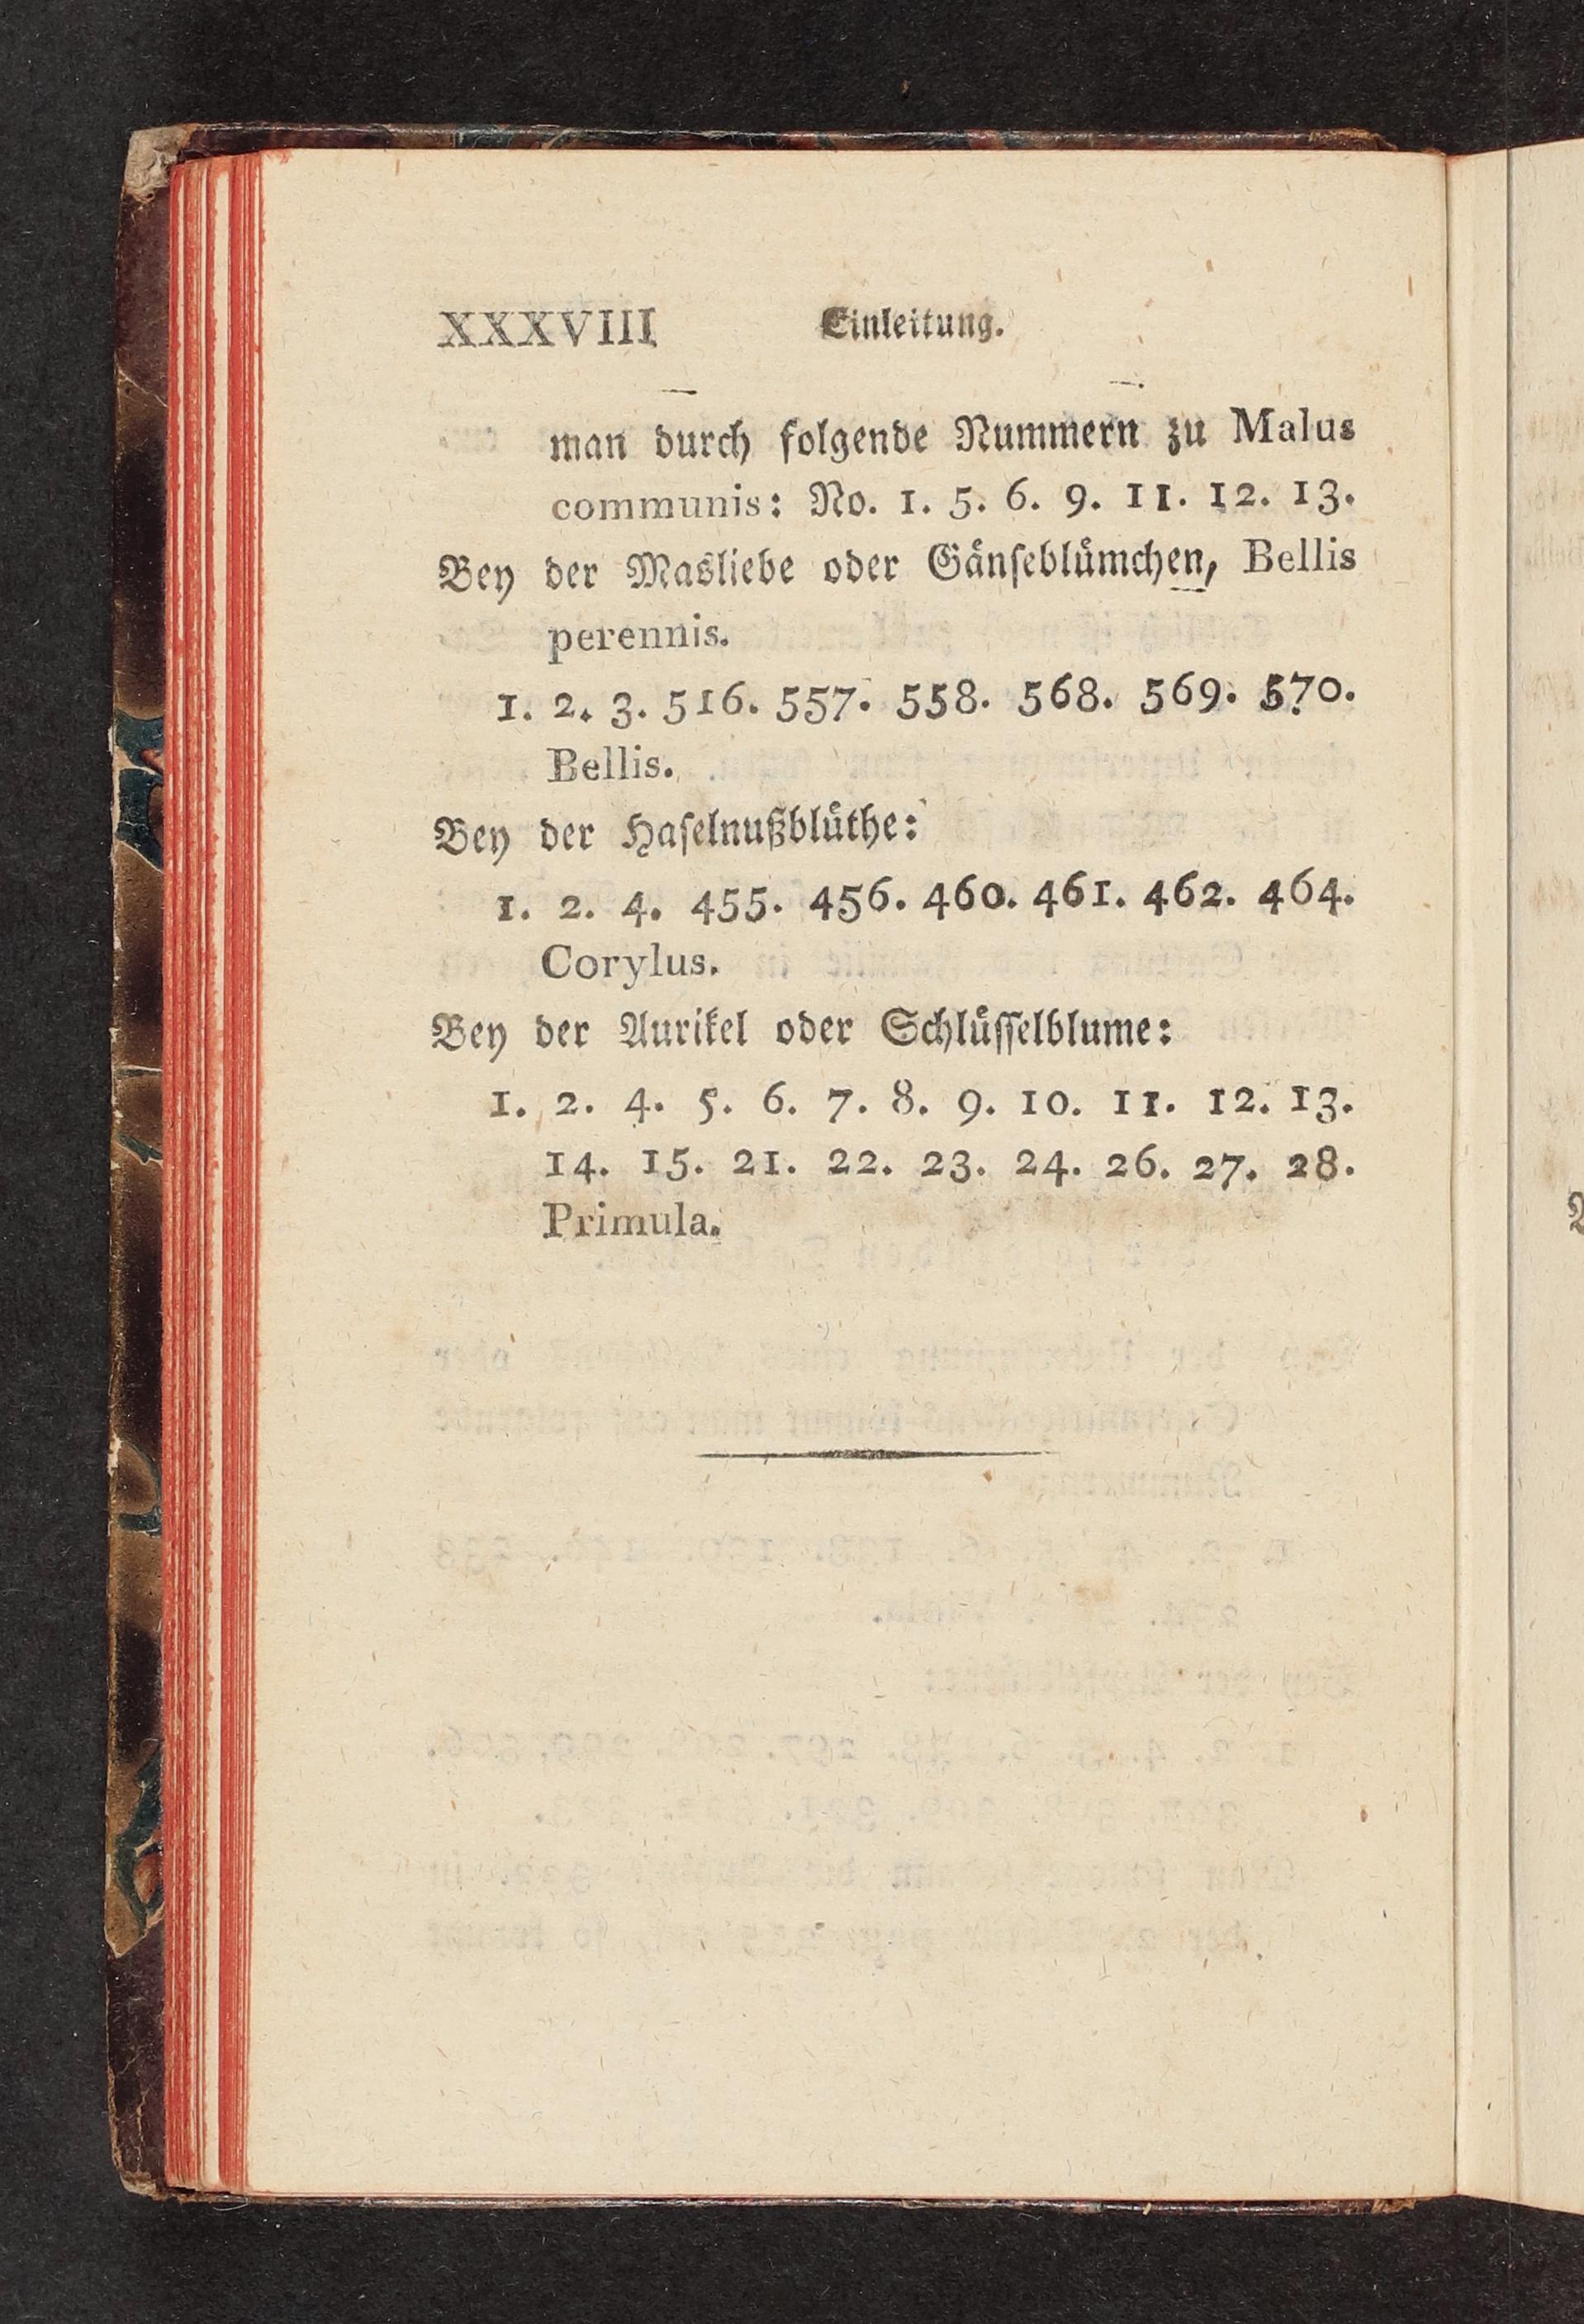 XXXVIII Einleitung.
man durch folgende Nummern zu Malus
communis: No. 1. 5. 6. 9. 11. 12. 13.
Bey der Masliebe oder Gänſeblümchen, Bellis
perennis.
1. 2. 3. 516. 557. 558. 568. 569. 570.
Bellis.
Bey der Haſelnußblüthe:
1. 2. 4. 455. 456. 460. 461. 462. 464.
Corylus.
Bey der Aurikel oder Schlüſſelblume:
1. 2. 4. 5. 6. 7. 8. 9. 10. 11. 12. 13.
14. 15. 21. 22. 23. 24. 26. 27. 28.
Primula.